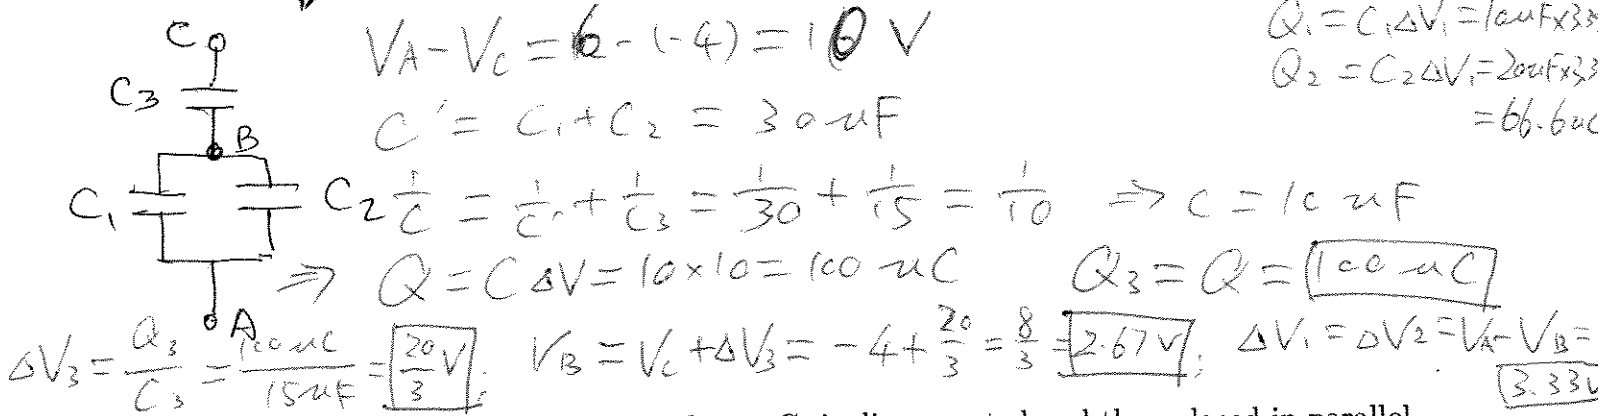 C
C3
B
C1
C2
A
VA - VC = 6 - (-4) = 10 V
C' = C1 + C2 = 30 uF
1/C = 1/C' + 1/C3 = 1/30 + 1/15 = 1/10 ⇒ C = 10 uF
⇒ Q = C ΔV = 10 × 10 = 100 uC Q3 = Q = 100 uC
ΔV3 = Q3/C3 = 100 uC/15 uF = 20/3 V; VB = VC + ΔV3 = -4 + 20/3 = 8/3 = 2.67 V; ΔV1 = ΔV2 = VA - VB =
3.33 V
Q1 = C1 ΔV1 = 10uF×3.3
Q2 = C2 ΔV1 = 20uF×3.3
= 66.6 uC